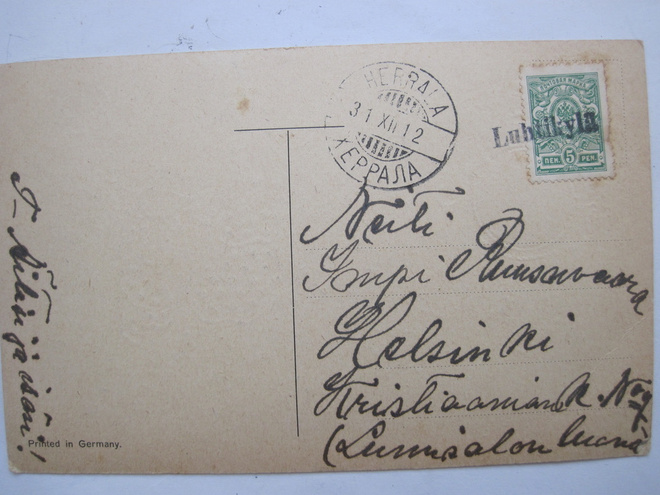 HERRALA
31 XII 12
ХЕРРАЛА
Luhtikylä
5
PEN.
Neiti
Impi Ruusuvaara
Helsinki
Kristiaanin k. No
(Lumisalon luona
Printed in Germany.